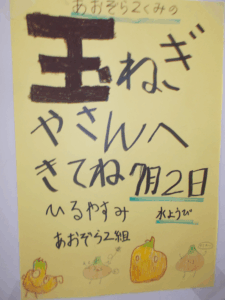 あおぞら2くみの
玉ねぎ
やさんへ
きてね 7月2日
ひるやすみ 水ようび
あおぞら2組